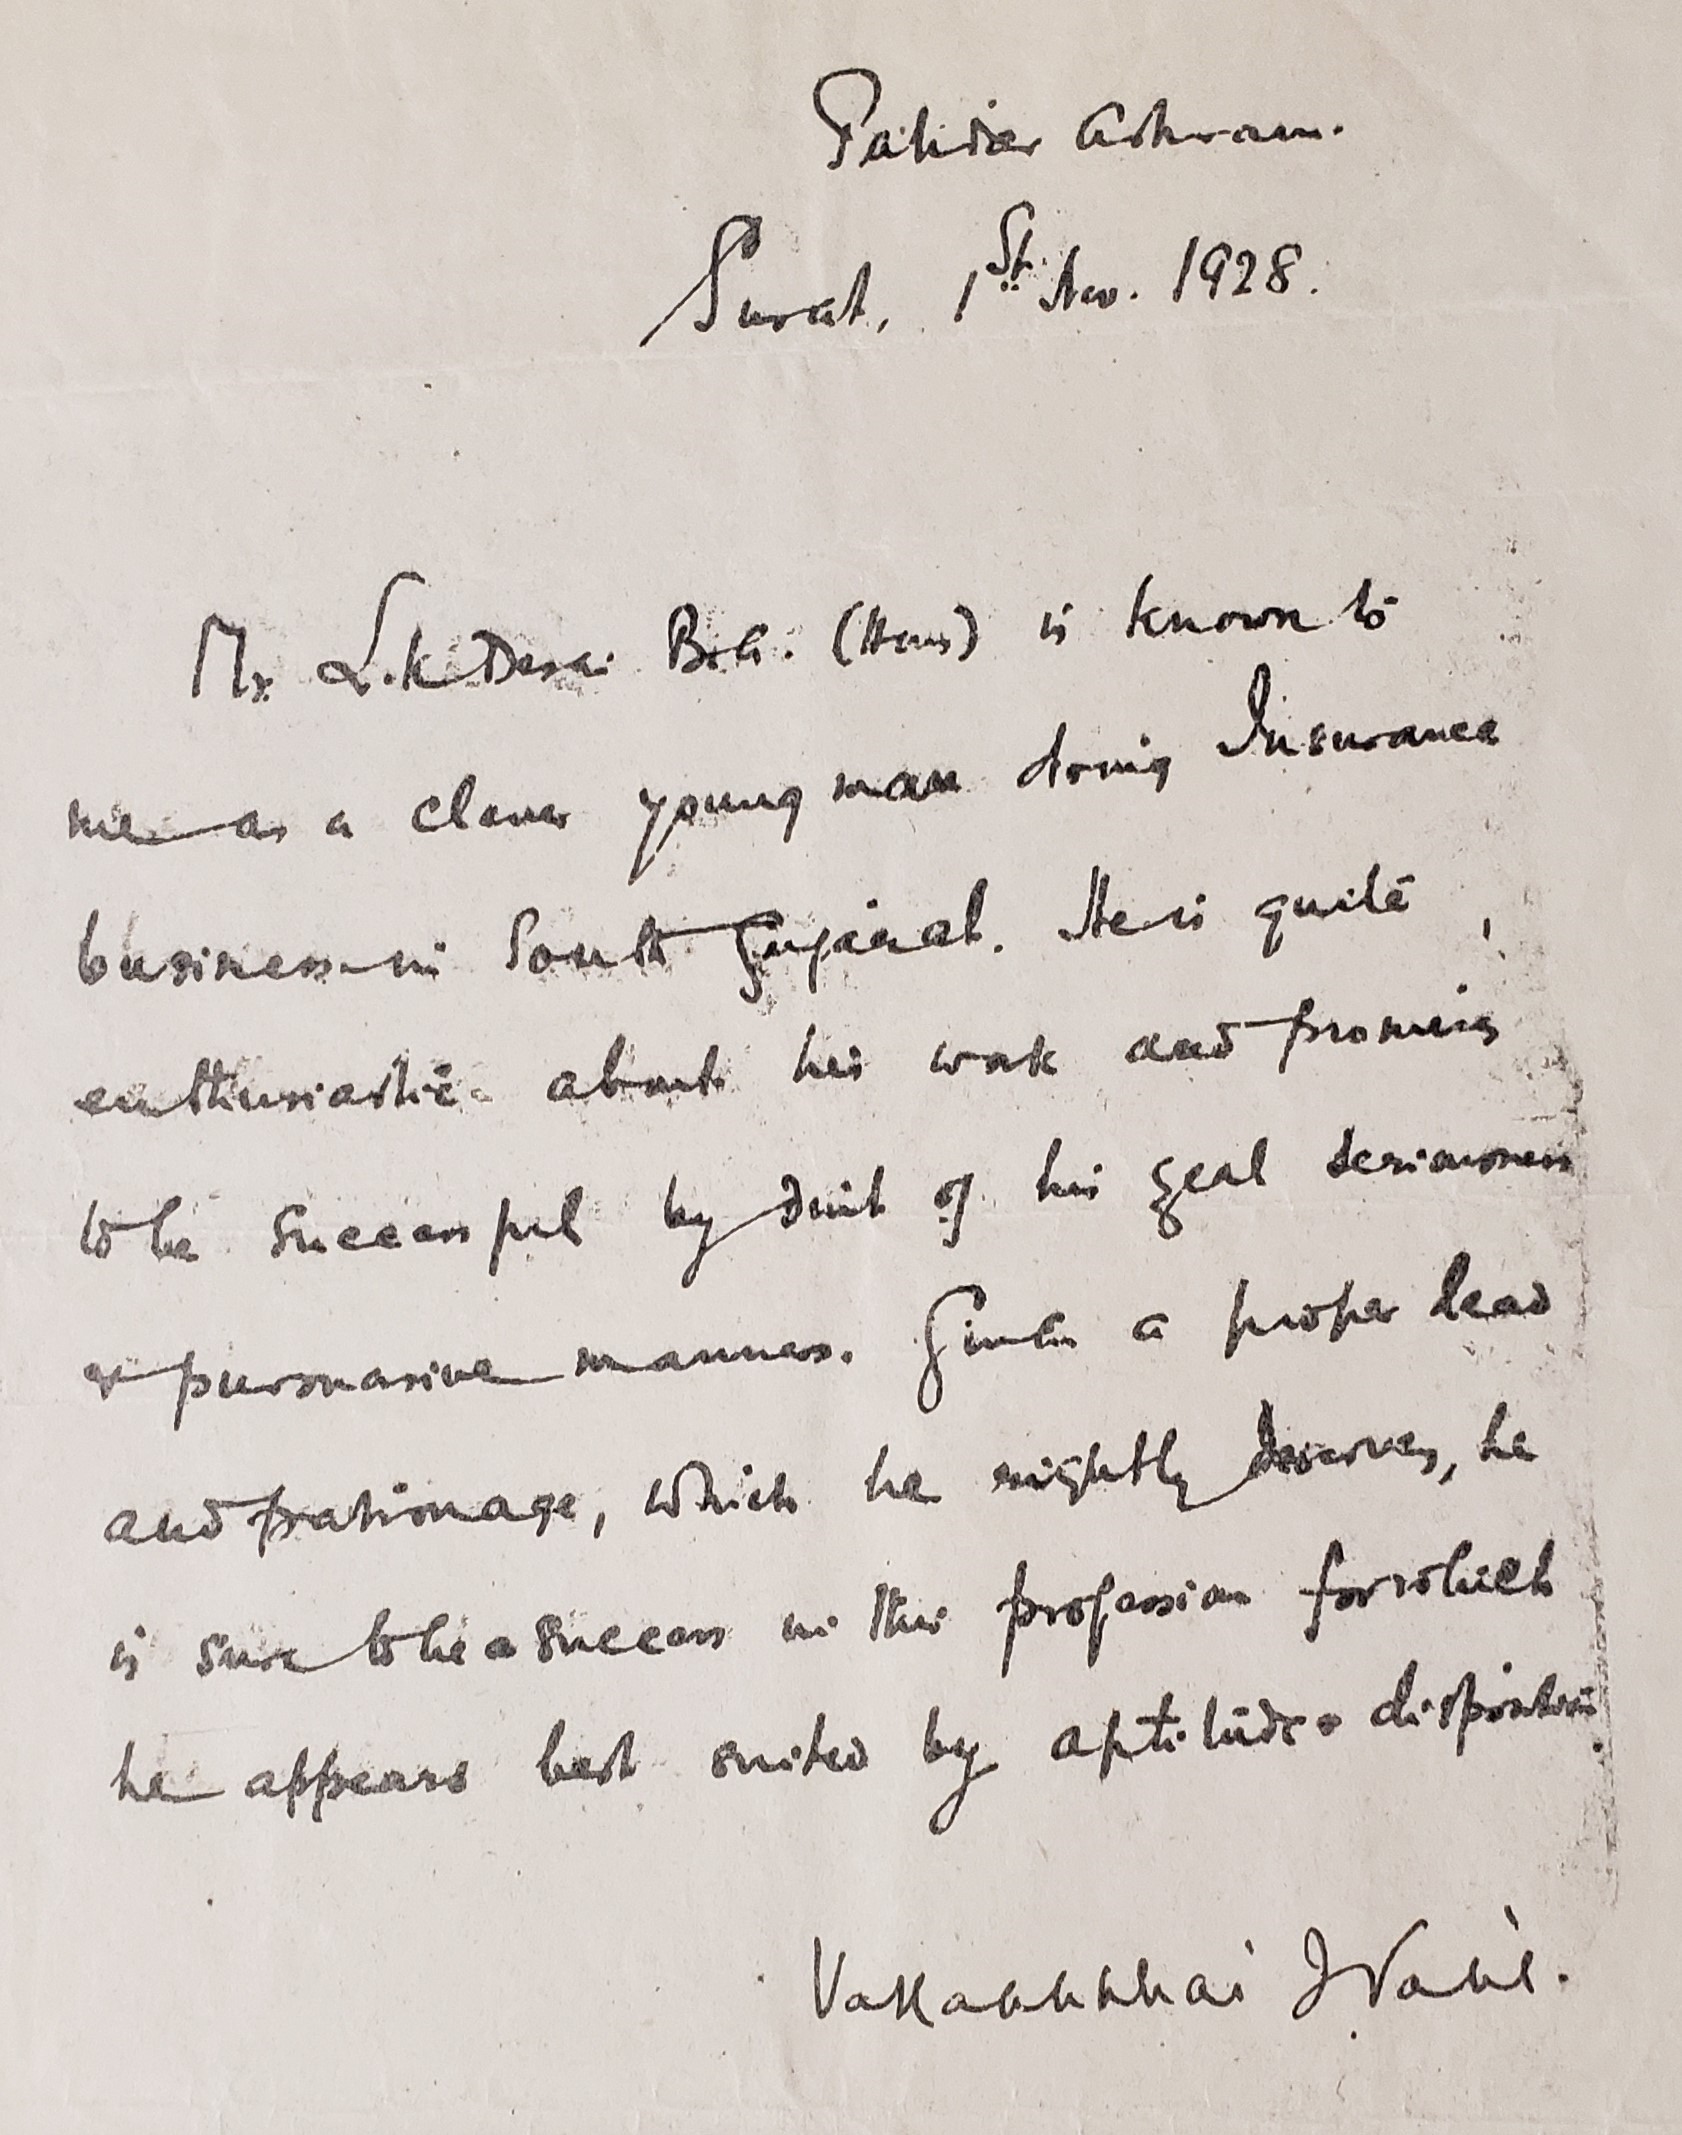 Patidar Ashram.
Surat, 1st Nov. 1928.
Mr. L. K Desai B.A. (Hons) is known to
me as a clever young man doing Insurance
business in South Gujarat. He is quite
enthusiastic about his work and promises
to be successful by dint of his zeal seriousness
& pursuasive manners. Given a proper lead
and patronage, which he rightly deserves, he
is sure to be a success in this profession for which
he appears best suited by aptitude & disposition.
Vallabhbhai J Patel.